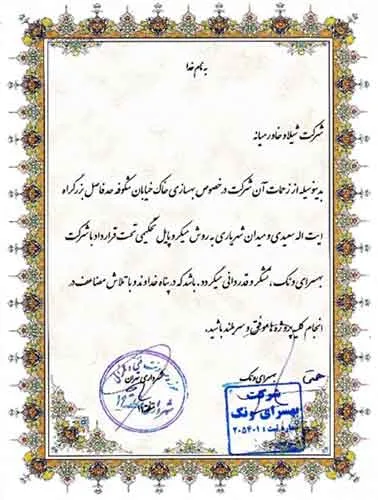 به نام خدا
شرکت شیلاو خاورمیانه
بدینوسیله از زحمات آن شرکت در خصوص بهسازی خاک خیابان شکوفه حد فاصل بزرگراه
ایت اله سعیدی و میدان شهریاری به روش میکروپایل تحکیمی تحت قرارداد با شرکت
بهسرای ونک، تشکر و قدردانی میگردد. باشد که در پناه خداوند و با تلاش مضاعف در
انجام کلیه پروژه ها موفق و سربلند باشید.
بهسرای ونک
شرکت
بهسرای ونک
شماره ثبت: ۲۰۵۴۰۱
شهرداری تهران